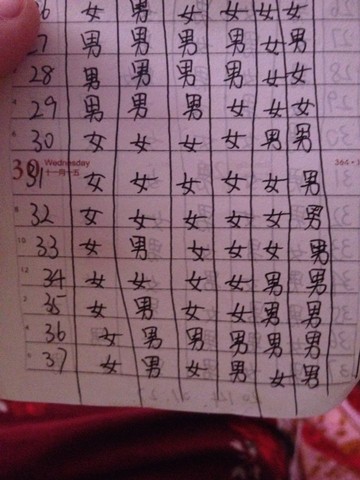 26 女 男 女 女 女 女
27 男 男 男 男 女 男
28 男 男 男 男 女 女
29 男 男 男 女 女 女
30 女 女 女 女 男 男
30 Wednesday 364
十一月十五
31 女 女 女 女 女 男
32 女 女 女 女 女 男
33 女 男 女 女 女 男
34 女 女 女 女 男 男
35 女 男 女 女 男 男
36 女 男 男 男 男 男
37 女 男 女 男 女 男